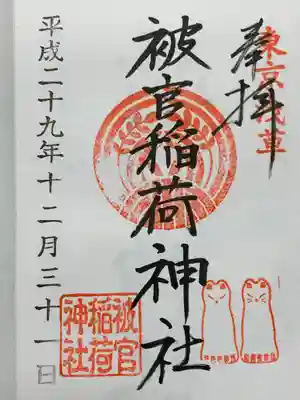 東京浅草
奉拝
被官稲荷神社
被官
稲荷
神社
平成二十九年十二月三十一日